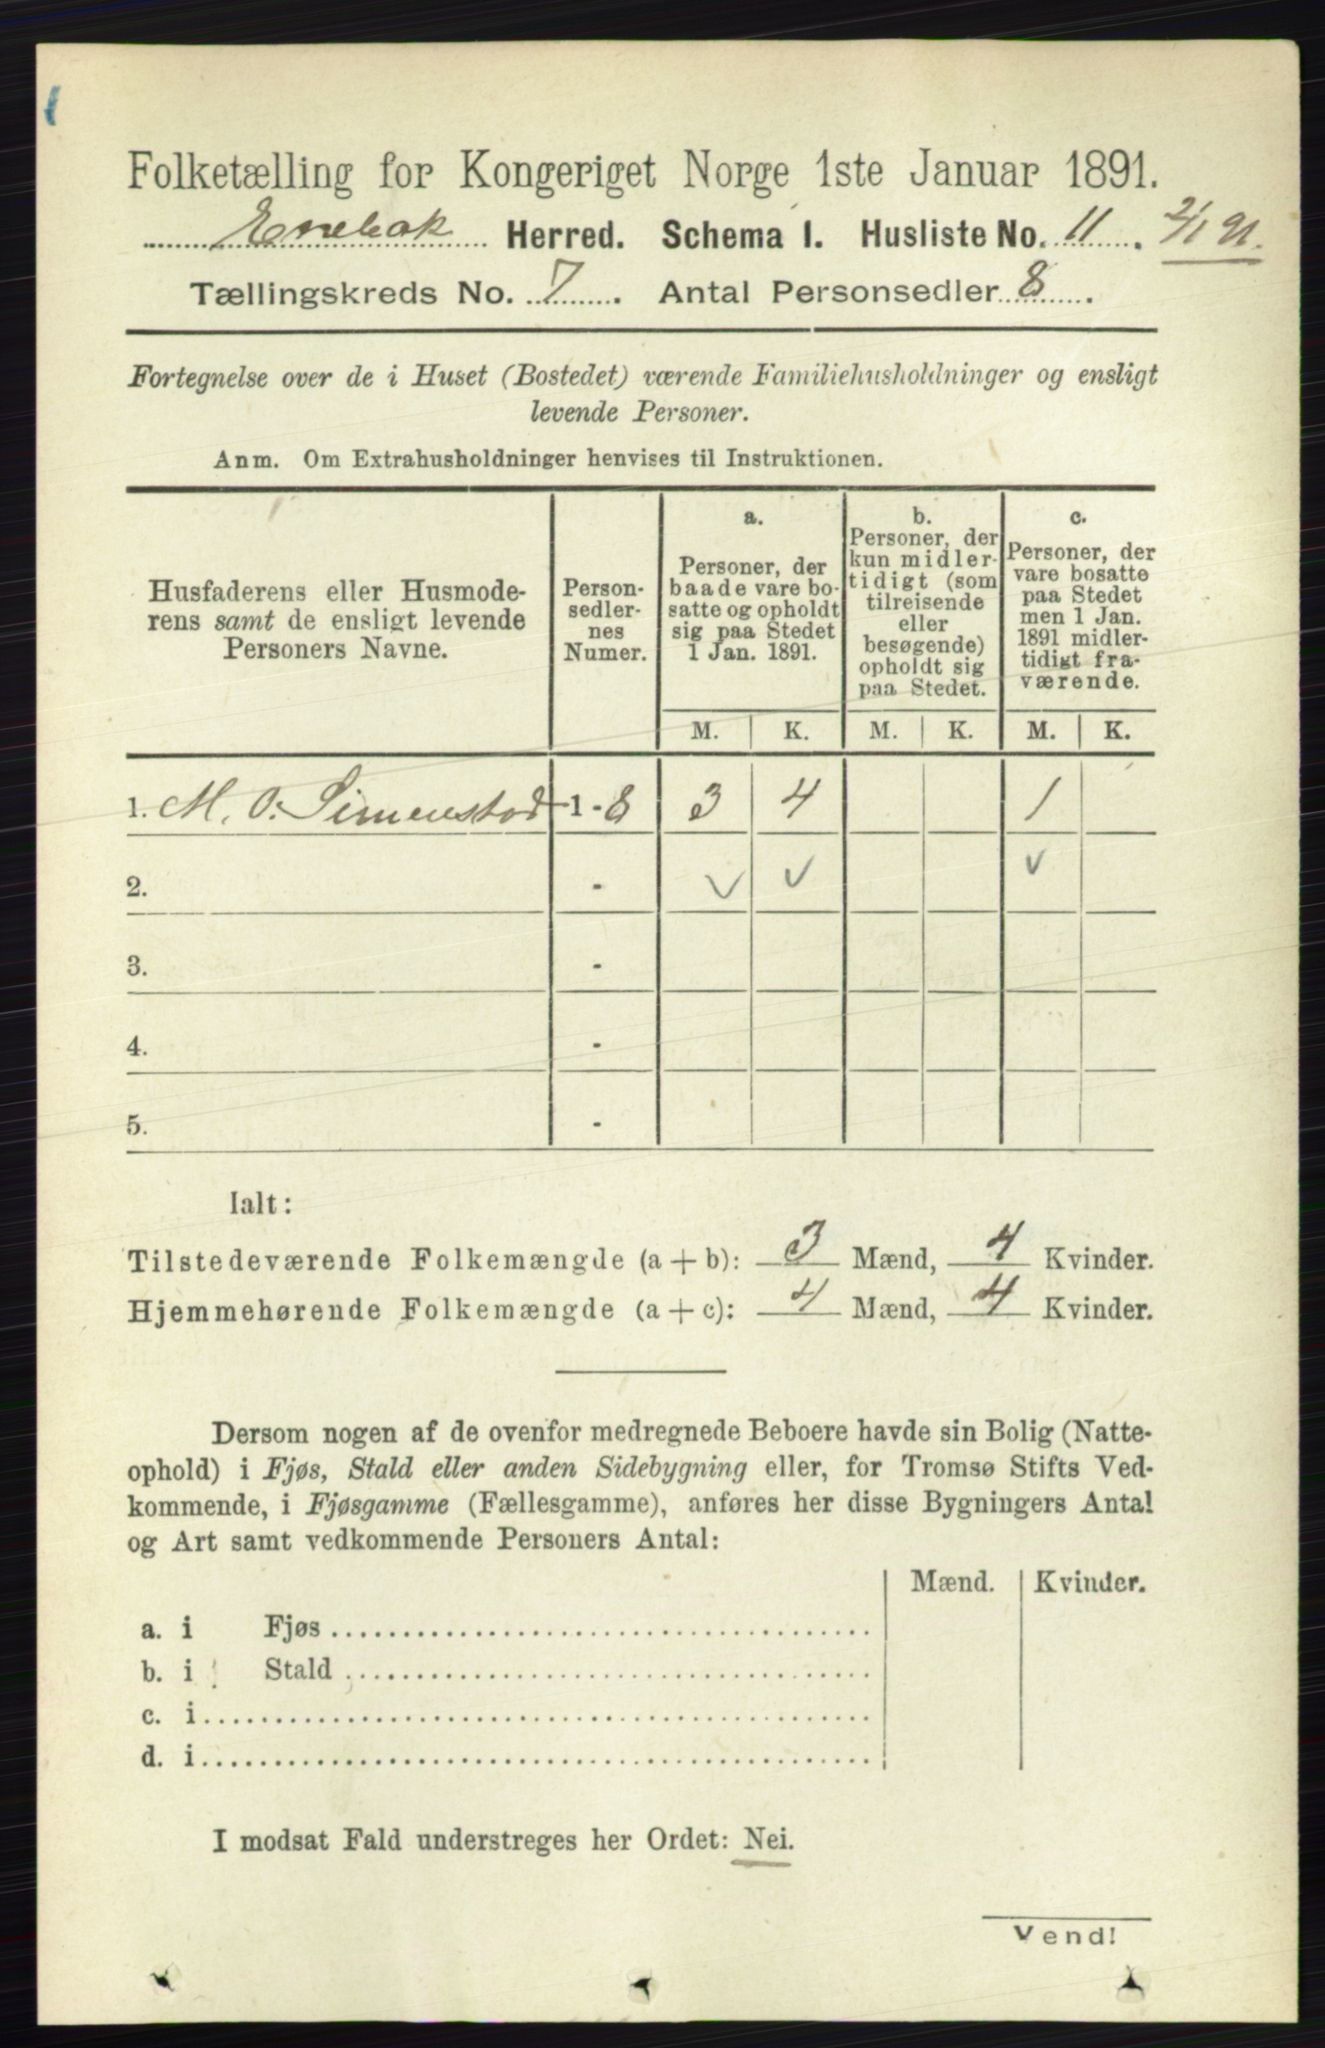 Folketælling for Kongeriget Norge 1ste Januar 1891.
Enebak Herred. Schema 1. Husliste No. 11. 2/1 91.
Tællingskreds No. 7. Antal Personsedler 8.
Fortegnelse over de i Huset (Bostedet) værende Familiehusholdninger og ensligt
levende Personer.
Anm. Om Extrahusholdninger henvises til Instruktionen.
Husfaderens eller Husmode-
rens samt de ensligt levende
Personers Navne.
Person-
sedler-
nes
Numer.
a.
Personer, der
baade vare bo-
satte og opholdt
sig paa Stedet
1 Jan. 1891.
b.
Personer, der
kun midler-
tidigt (som
tilreisende
eller
besøgende)
opholdt sig
paa Stedet.
c.
Personer, der
vare bosatte
paa Stedet
men 1 Jan.
1891 midler-
tidigt fra-
værende.
M. K. M. K. M. K.
1. M. O. Simenstad 1-8 3 4 1
2. - ✓ ✓ ✓
3. -
4. -
5. -
Ialt:
Tilstedeværende Folkemængde (a + b): 3 Mænd, 4 Kvinder.
Hjemmehørende Folkemængde (a + c): 4 Mænd, 4 Kvinder.
Dersom nogen af de ovenfor medregnede Beboere havde sin Bolig (Natte-
ophold) i Fjøs, Stald eller anden Sidebygning eller, for Tromsø Stifts Ved-
kommende, i Fjøsgamme (Fællesgamme), anføres her disse Bygningers Antal
og Art samt vedkommende Personers Antal:
Mænd. Kvinder.
a. i Fjøs
b. i Stald
c. i
d. i
I modsat Fald understreges her Ordet: Nei.
Vend!